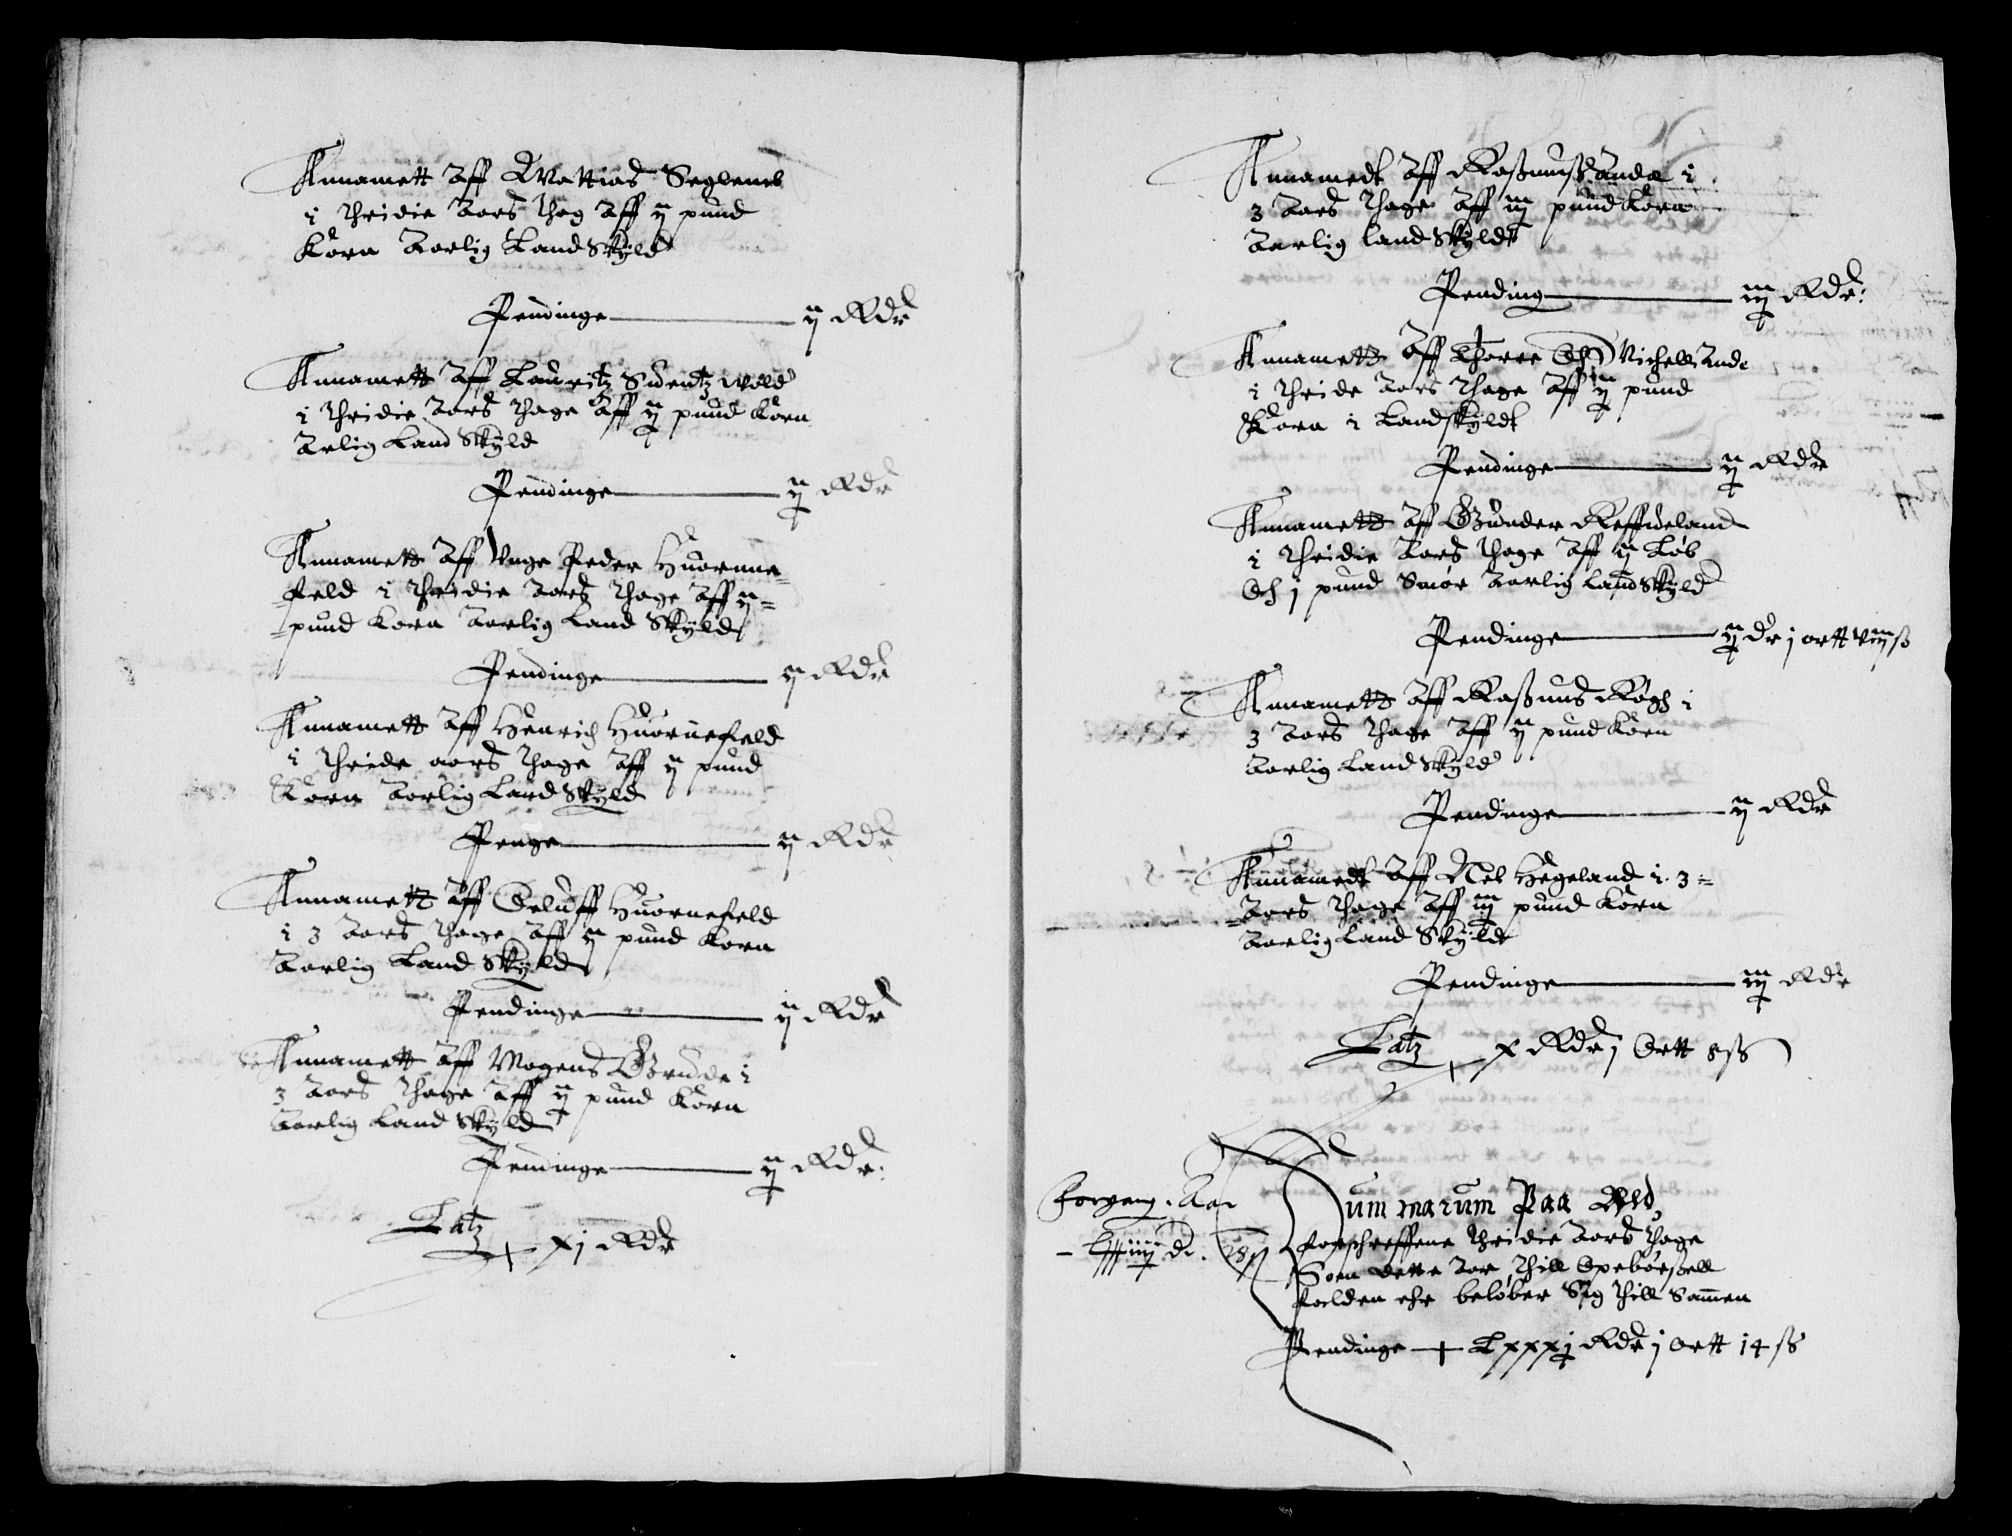 Annamett Aff Mattias Seglenes
i thridie Aars thag Aff ij pund
Korn Aarlig Landskyld
Pendinge — ij Rdr
Annamett Aff Lauritz Suentz wold
i thridie Aars thage Aff ij pund Korn
Aarlig Landskyld
Pendinge — ij Rdr
Annamett Aff Unge Peder Huorune=
=feld i thridie Aars thage Aff ij=
=pund Korn Aarlig Land Skyld
Pendinge — ij Rdr
Annamett Aff Henrich Huornefield
i thride aars thage Aff ij pund
Korn Aarlig Land Skyld
Penge — ij Rdr
Annamett Aff Oeluff Huornefield
i 3 Aars thage Aff ij pund Korn
Aarlig Land Skyld
Pendinge — ij Rdr
Annamett Aff Mogens Grude i
3 Aars thage Aff ij pund Korn
Aarlig Land Skyld
Pendinge — ij Rdr:
Latz xj Rdr
Annamedt Aff Rasmus Ande i
3 Aars thage Aff iij pund Korn
Aarlig land Skyldt
Pending — iij Rdr:
Annamett Aff Thorre Och Michell Ande
i thride Aars thage Aff ij pund
Korn i Landskyldt
Pendinge — ij Rdr
Annamett Aff Gunder Reffueland
i thridie Aars thage Aff ij Løb
Och j pund Smør Aarlig Land Skyld
Pendinge — ij dr j ortt viij ß
Annamett Aff Rasmus Køgh i
3 Aars thage Aff ij pund Korn
Aarlig Land Skyld
Pendinge — ij Rdr
Annamedt Aff Nels Hegeland i 3=
=Aars thage Aff iij pund Korn
Aarlig Land Skyldt
Pendinge — iij Rdr
Latz x Rdr j Ortt 8 ß
Forgang. Aar
Summarum Paa
forschreffene thridie Aars thage
Som dette Aar thill Opebørßell
falden ehr beløber Sig thill Sammen
Pendinge — Lxxxj Rdr j ortt 14 ß